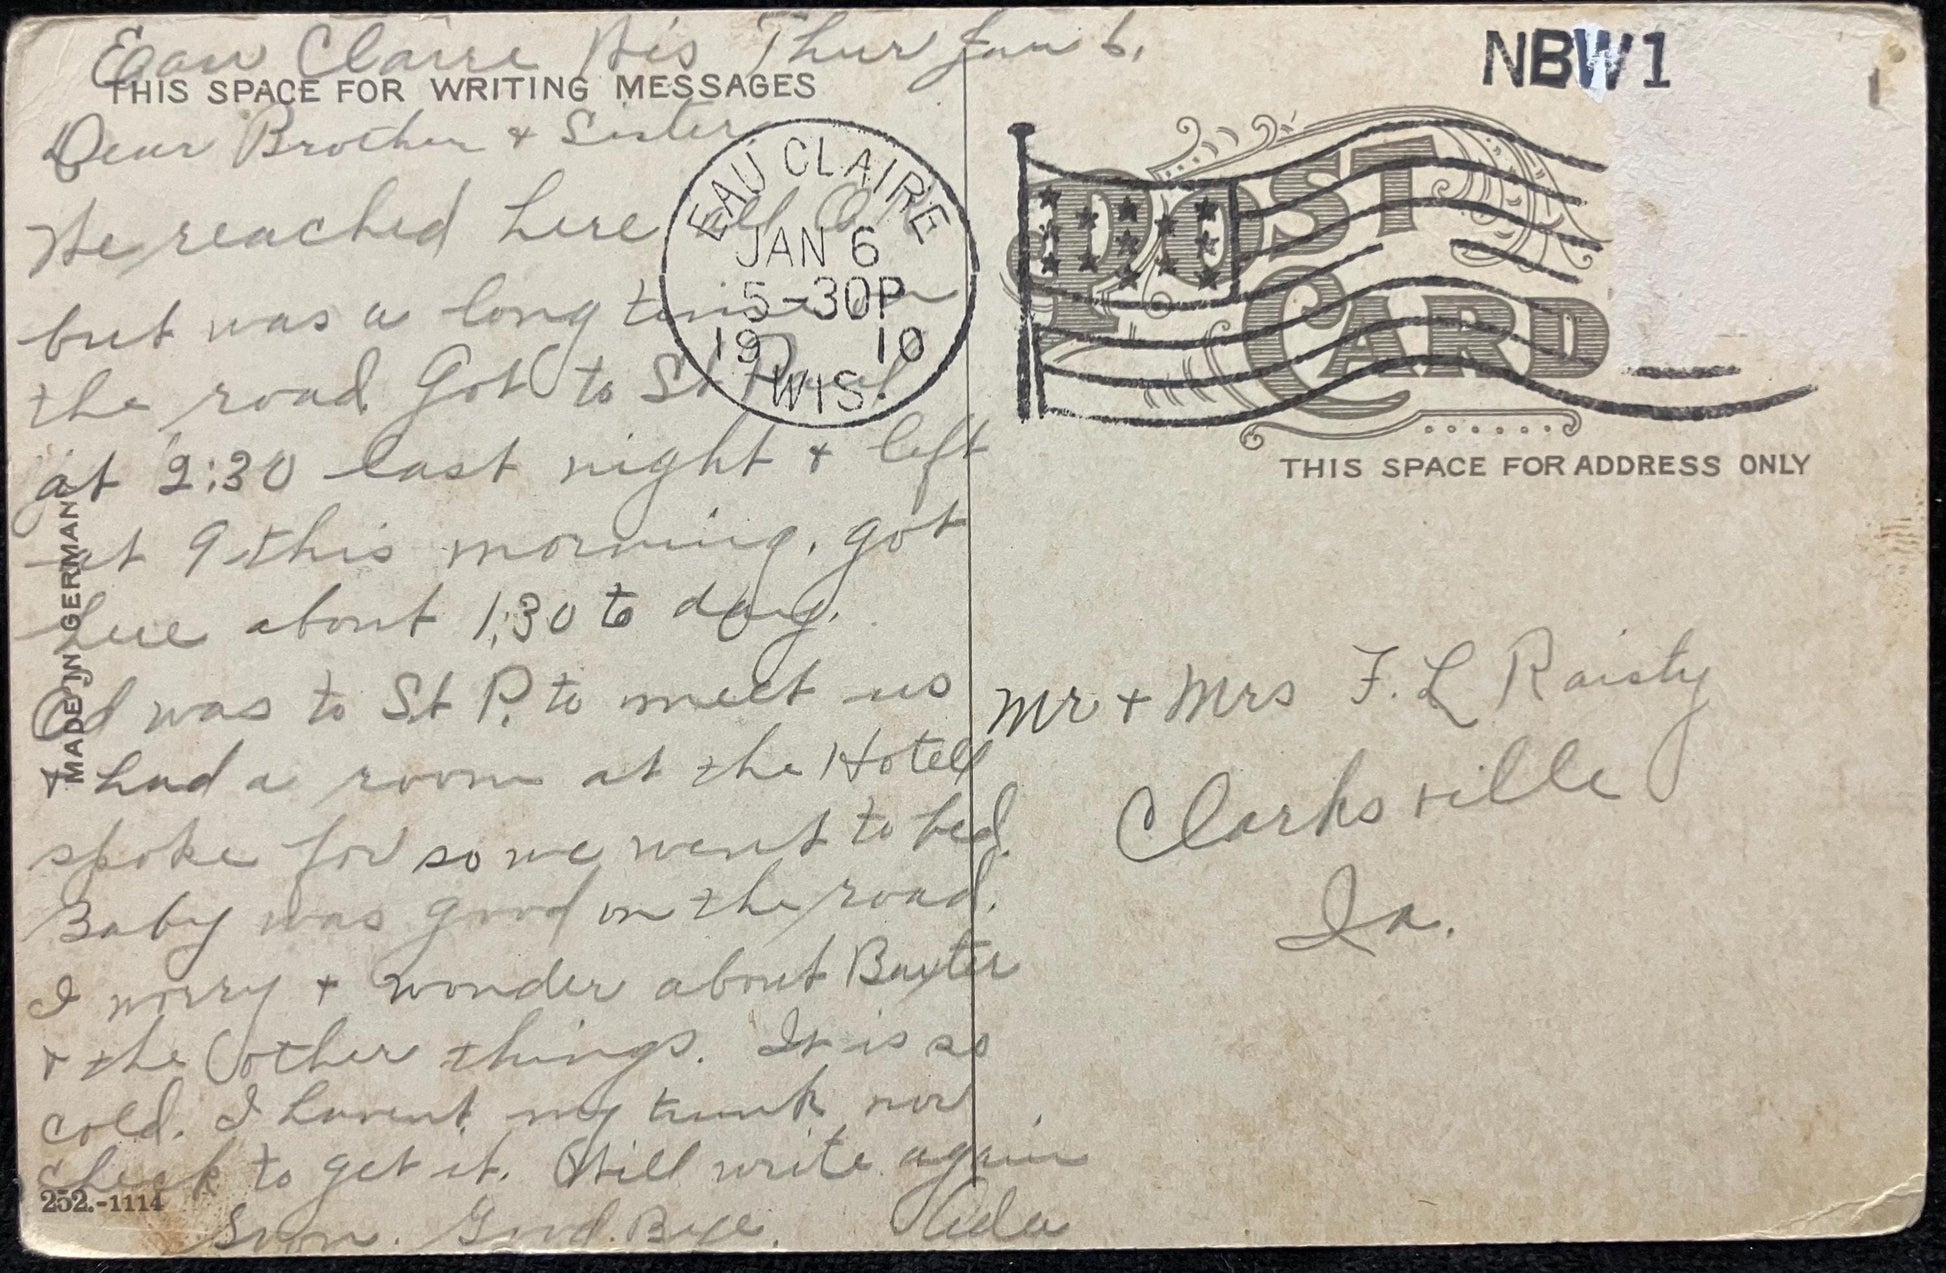 Eau Claire Wis Thur Jan 6.
THIS SPACE FOR WRITING MESSAGES
Dear Brother & Sister
We reached here all O.K.
but was a long time on
the road Got to St Paul
at 2:30 last night & left
at 9 this morning. got
here about 1:30 to day.
Ed was to St P. to meet us
& had a room at the Hotell
spoke for so we went to bed.
Baby was good on the road.
I worry & wonder about Baxter
& the other things. It is so
cold. I havent my trunk nor
check to get it. Will write again
soon. Good Bye. Ada
MADE IN GERMANY
252.-1114
EAU CLAIRE
JAN 6
5-30P
1910
WIS.
NBW1
POST
CARD
THIS SPACE FOR ADDRESS ONLY
Mr & Mrs F. L Raisty
Clarksville
Ia.